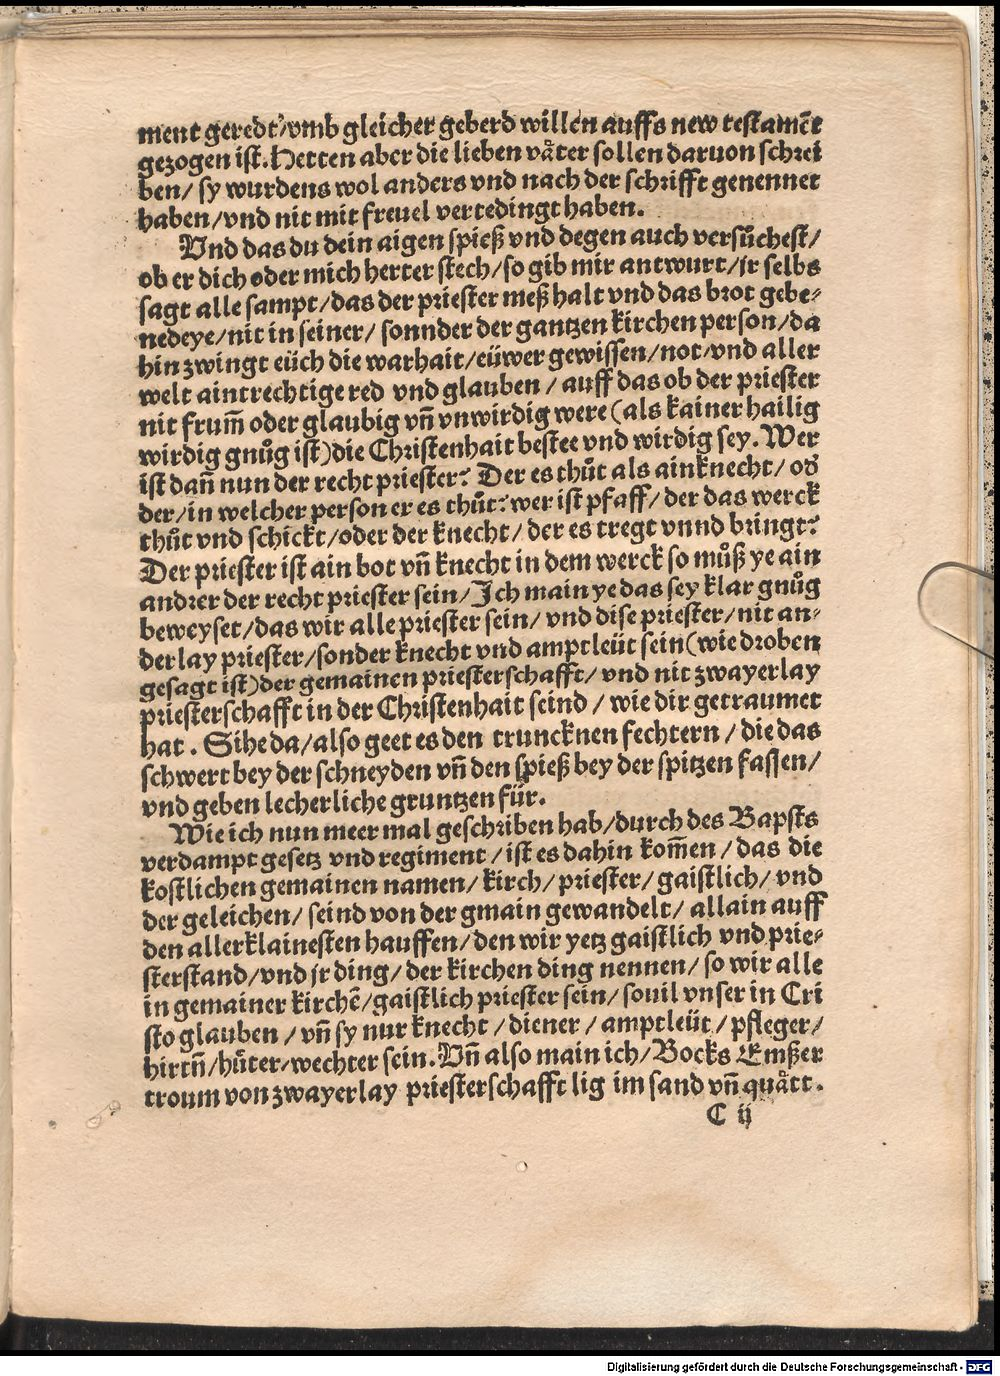 ment geredt/vmb gleicher geberd willen auffs new testamēt
gezogen ist. Hetten aber die lieben vaͤter sollen daruon schrei
ben/ sy wurdens wol anders vnd nach der schrifft genennet
haben/vnd nit mit freuel vertedingt haben.
Vnd das du dein aigen spieß vnd degen auch versuͦchest/
ob er dich oder mich herter stech/so gib mir antwurt/jr selbs
sagt alle sampt/das der priester meß halt vnd das brot gebe⸗
nedeye/nit in seiner/ sonnder der gantzen kirchen person/da
hin zwingt euͤch die warhait/euͤwer gewissen/not/vnd aller
welt aintrechtige red vnd glauben/ auff das ob der priester
nit frum̄ oder glaubig vn̄ vnwirdig were (als kainer hailig
wirdig gnuͦg ist) die Christenhait bestee vnd wirdig sey. Wer
ist dan̄ nun der recht priester? Der es thuͦt als ain knecht/ od̕
der/in welcher person er es thuͦt? wer ist pfaff/ der das werck
thuͦt vnd schickt/oder der knecht/ der es tregt vnnd bringt?
Der priester ist ain bot vn̄ knecht in dem werck so muͦß ye ain
andrer der recht priester sein/ Ich main ye das sey klar gnuͦg
beweyset/das wir alle priester sein/ vnd dise priester/nit an⸗
der lay priester/sonder knecht vnd amptleuͤt sein (wie droben
gesagt ist) der gemainen priesterschafft/ vnd nit zwayerlay
priesterschafft in der Christenhait seind / wie dir getraumet
hat. Sihe da/also geet es den truncknen fechtern/ die das
schwert bey der schneyden vn̄ den spieß bey der spitzen fassen/
vnd geben lecherliche gruntzen fuͤr.
Wie ich nun meer mal geschriben hab/durch des Bapsts
verdampt gesetz vnd regiment /ist es dahin kom̄en /das die
kostlichen gemainen namen/ kirch/ priester/ gaistlich/ vnd
der geleichen/ seind von der gmain gewandelt/ allain auff
den allerklainesten hauffen/den wir yetz gaistlich vnd prie⸗
sterstand/vnd jr ding/ der kirchen ding nennen/ so wir alle
in gemainer kirchē/gaistlich priester sein/ souil vnser in Cri
sto glauben / vn̄ sy nur knecht / diener / amptleuͤt / pfleger/
hirtn̄/huͤter/wechter sein. Vn̄ also main ich/ Bocks Emßer
troum von zwayerlay priesterschafft lig im sand vn̄ quaͤtt.
C ij
Digitalisierung gefördert durch die Deutsche Forschungsgemeinschaft - DFG